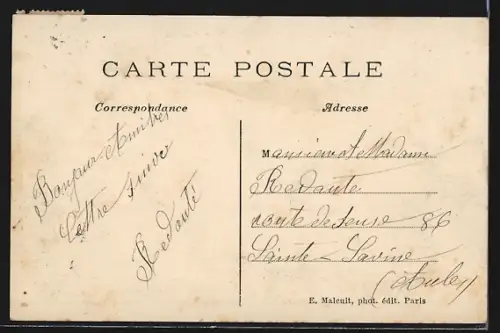 CARTE POSTALE
Correspondance
Bonjour Amities
Lettre suive
Redauté
Adresse
Monsieur et Madame
Redauté
route de 86
Sainte-Savine
(Aube)
E. Maleuit, phot. édit. Paris